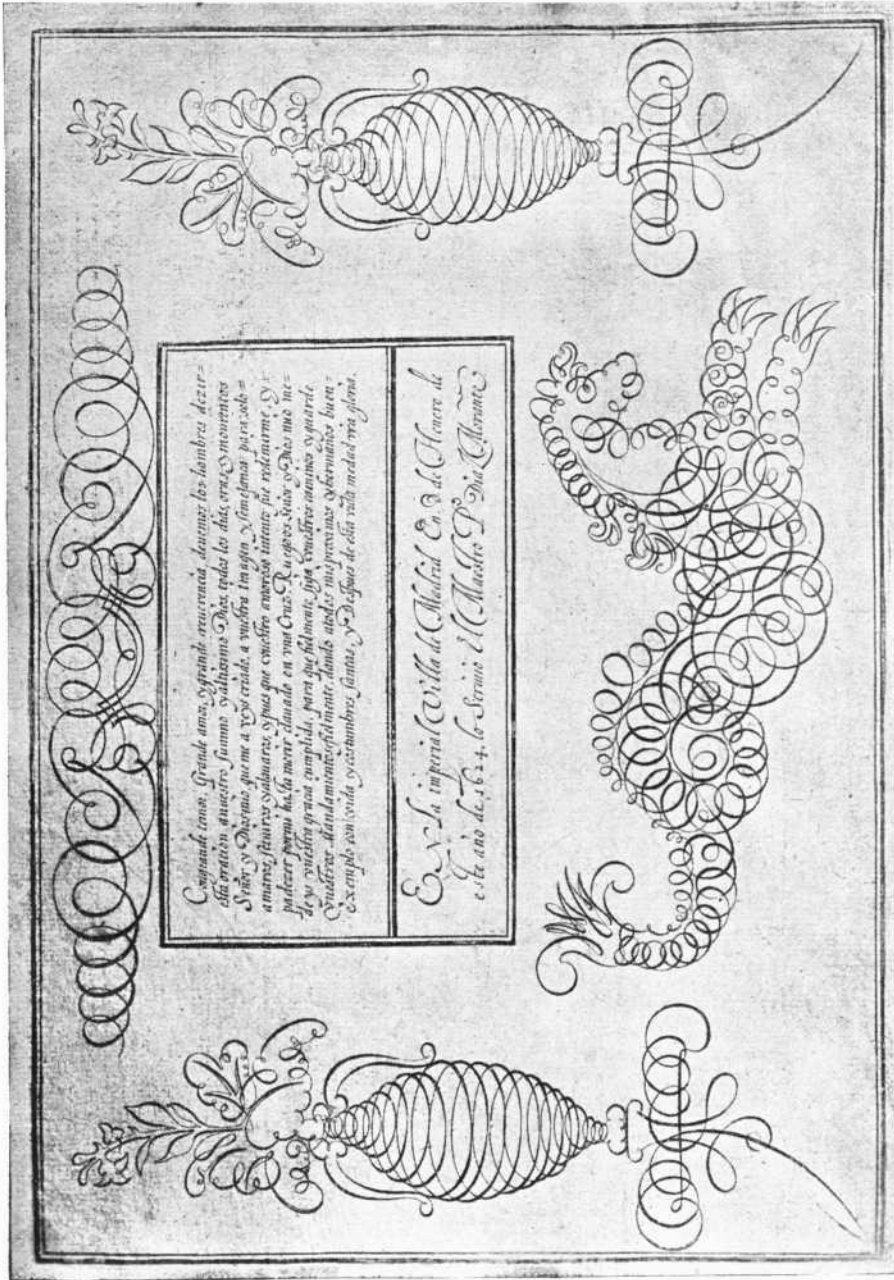 Congrande temor, Grande amor, y grande reuerencia, deuemos los hombres dezir=
esta oracion anuestro summo y altissimo Dios, todos los dias, oras, y momentos
Señor, y Dios mio, que me a veys criado, a vuestra Imagen y semejança para solo=
amaros, seruiros y alauaros, y pues que vuestro amoroso intento fue redemirme, y
padecer por mi hasta morir clauado en vna Cruz. Ruego os Señor y Dios mio me=
deys vuestra gracia cumplida, para que fielmente siga vuestros caminos y guarde
Vuestros Mandamientos fielmente, dando atodos mis proximos y hermanos buen=
exemplo con vida y costumbres santas, y Despues de esta vida
EN la imperial Villa de Madrid En 8. de Henero de
este año de 1624. lo Seruio El Maestro P.º Diaz Morante